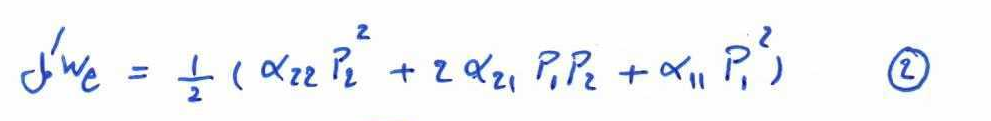 δ'We = 1/2 ( α22 P2² + 2 α21 P1 P2 + α11 P1² ) ②